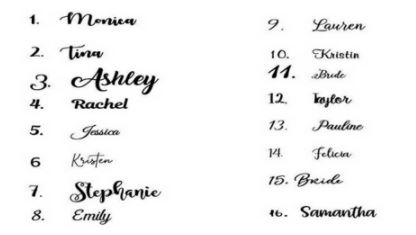 1. Monica
2. Tina
3. Ashley
4. Rachel
5. Jessica
6 Kristen
7. Stephanie
8. Emily
9. Lauren
10. Kristin
11. Bride
12. Taylor
13. Pauline
14. Felicia
15. Bride
16. Samantha